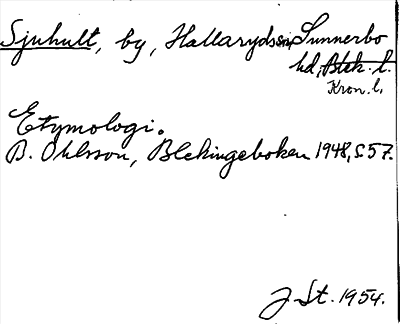 Sjuhult, by, Hallaryds sn, Sunnerbo
hd, Blek. l.
Kron. l.
Etymologi.
B. Ohlsson, Blekingeboken 1948, s. 57.
J. St. 1954.